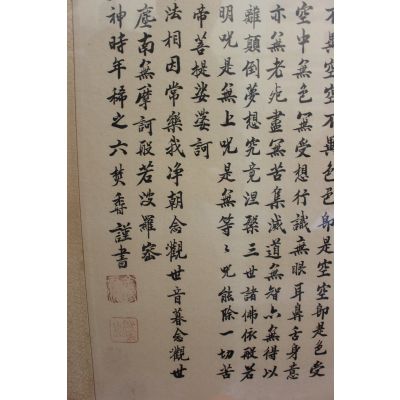 不異空空不異色色即是空空即是色受
空中無色無受想行識無眼耳鼻舌身意
亦無老死盡無苦集滅道無智亦無得以
離顛倒夢想究竟涅槃三世諸佛依般若
明咒是無上咒是無等々咒能除一切苦
帝菩提娑婆訶
法相因常樂我淨朝念觀世音暮念觀世
塵南無摩訶般若波羅蜜
神時年稀之六焚香謹書